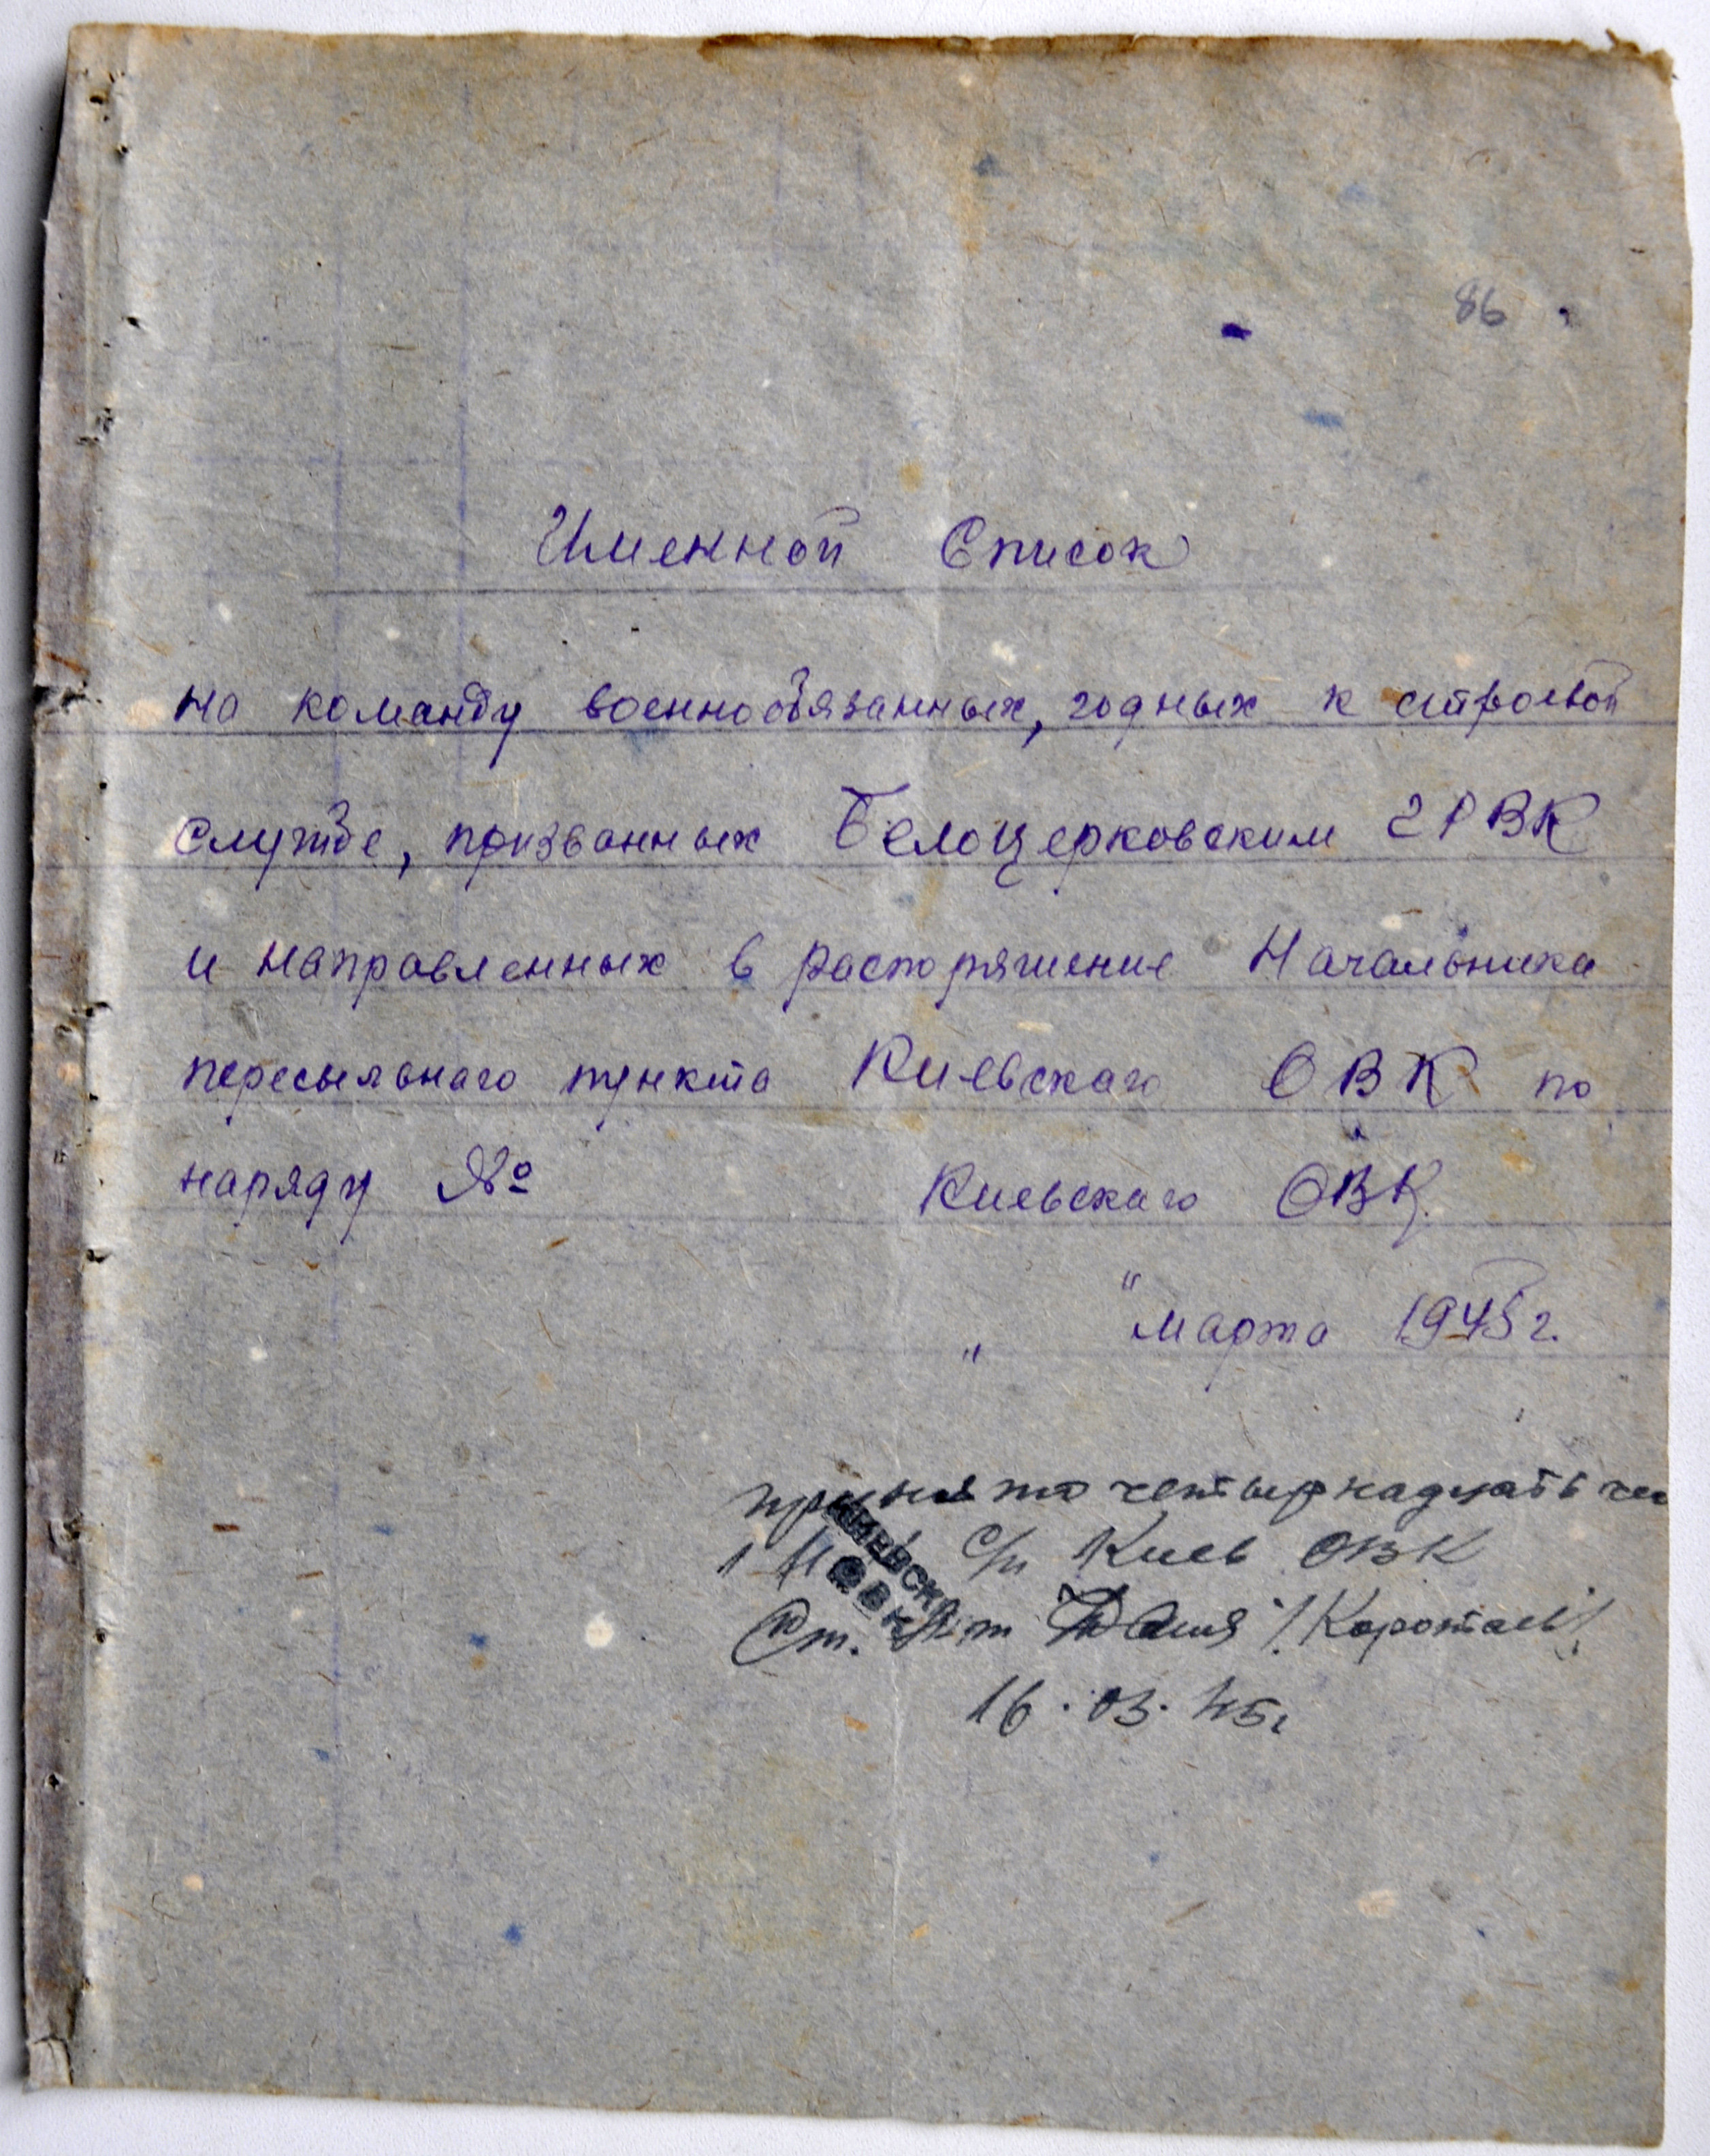 86
Именной Список
на команду военнообязанных, годных к строевой
службе, призванных Белоцерковским ГРВК
и направленных в распоряжение Начальника
пересыльного пункта Киевского ОВК по
наряду № Киевского ОВК.
„ " марта 1945 г.
принято четырнадцать чел
с/п Киев ОВК
Ст. /Коротаев/
16.03.45г
КИЕВСК
ОВК